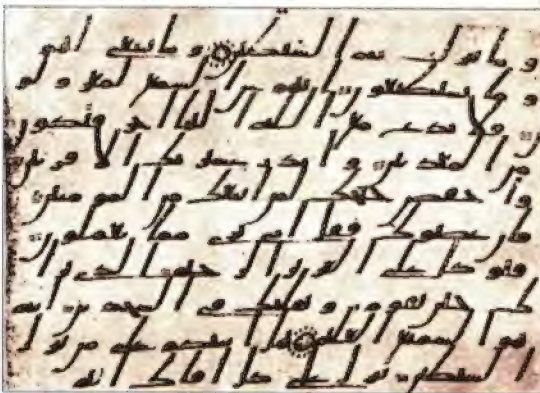 وما تنزلت به الشيطين وما ينبغي لهم
وما يستطيعون انهم عن السمع لمعزولو
ن فلا تدع مع الله الها اخر فتكون
من المعذبين وانذر عشيرتك الاقربين
واخفض جناحك لمن اتبعك من المومنين
فان عصوك فقل اني بري مما تعملون
وتوكل على العزيز الرحيم الذي ير
ك حين تقوم وتقلبك في السجدين انه
هو السميع العليم هل انبيكم على من تنزل
الشيطين تنزل على كل افاك اثيم